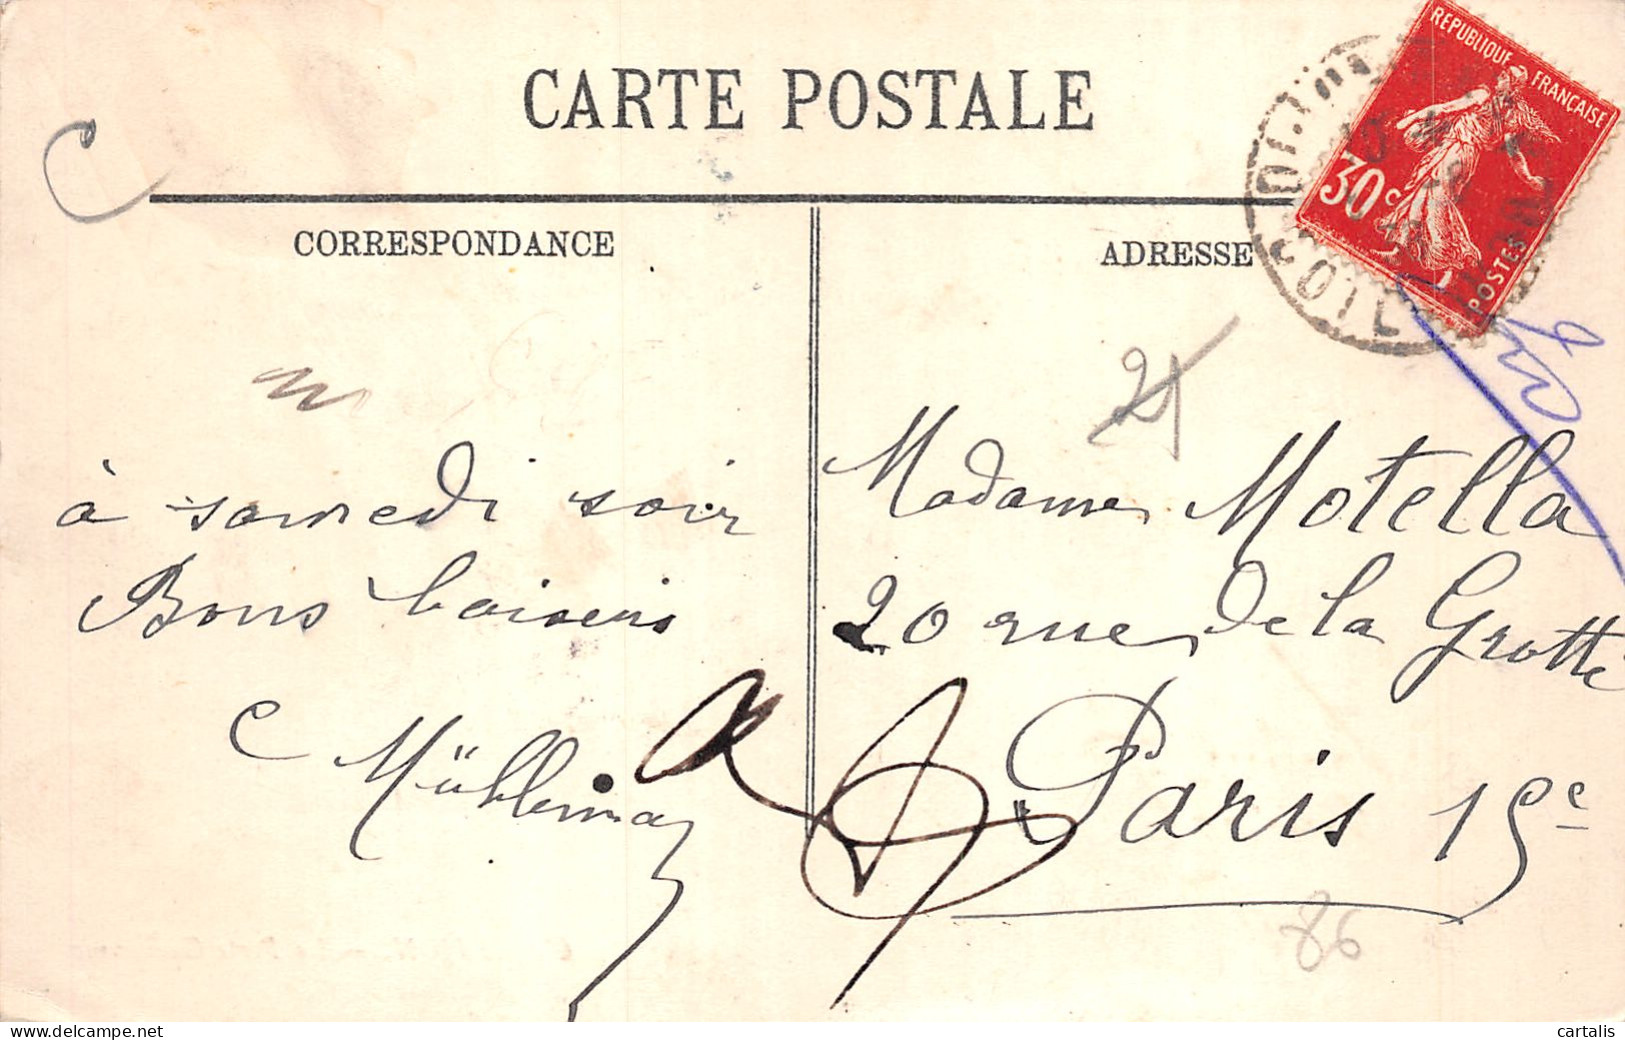 CARTE POSTALE
CORRESPONDANCE
à samedi soir
Bons baisers
C
ADRESSE
REPUBLIQUE FRANÇAISE
30c
POSTES
Madame Motella
20 rue de la Grotte
Paris 15e
86
www.delcampe.net
cartalis